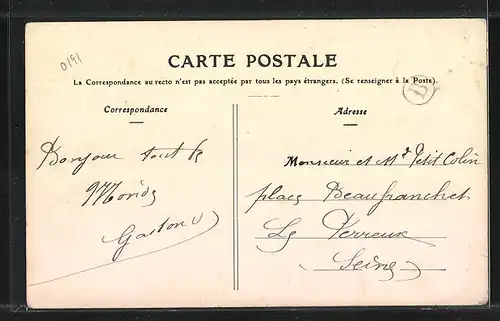 0191
CARTE POSTALE
La Correspondance au recto n'est pas acceptée par tous les pays étrangers. (Se renseigner à la Poste).
B
Correspondance
Bonjour tout le
Monde
Gaston
Adresse
Monsieur et Me Petit Colin
place Beaufranchet
Le Perreux
(Seine)